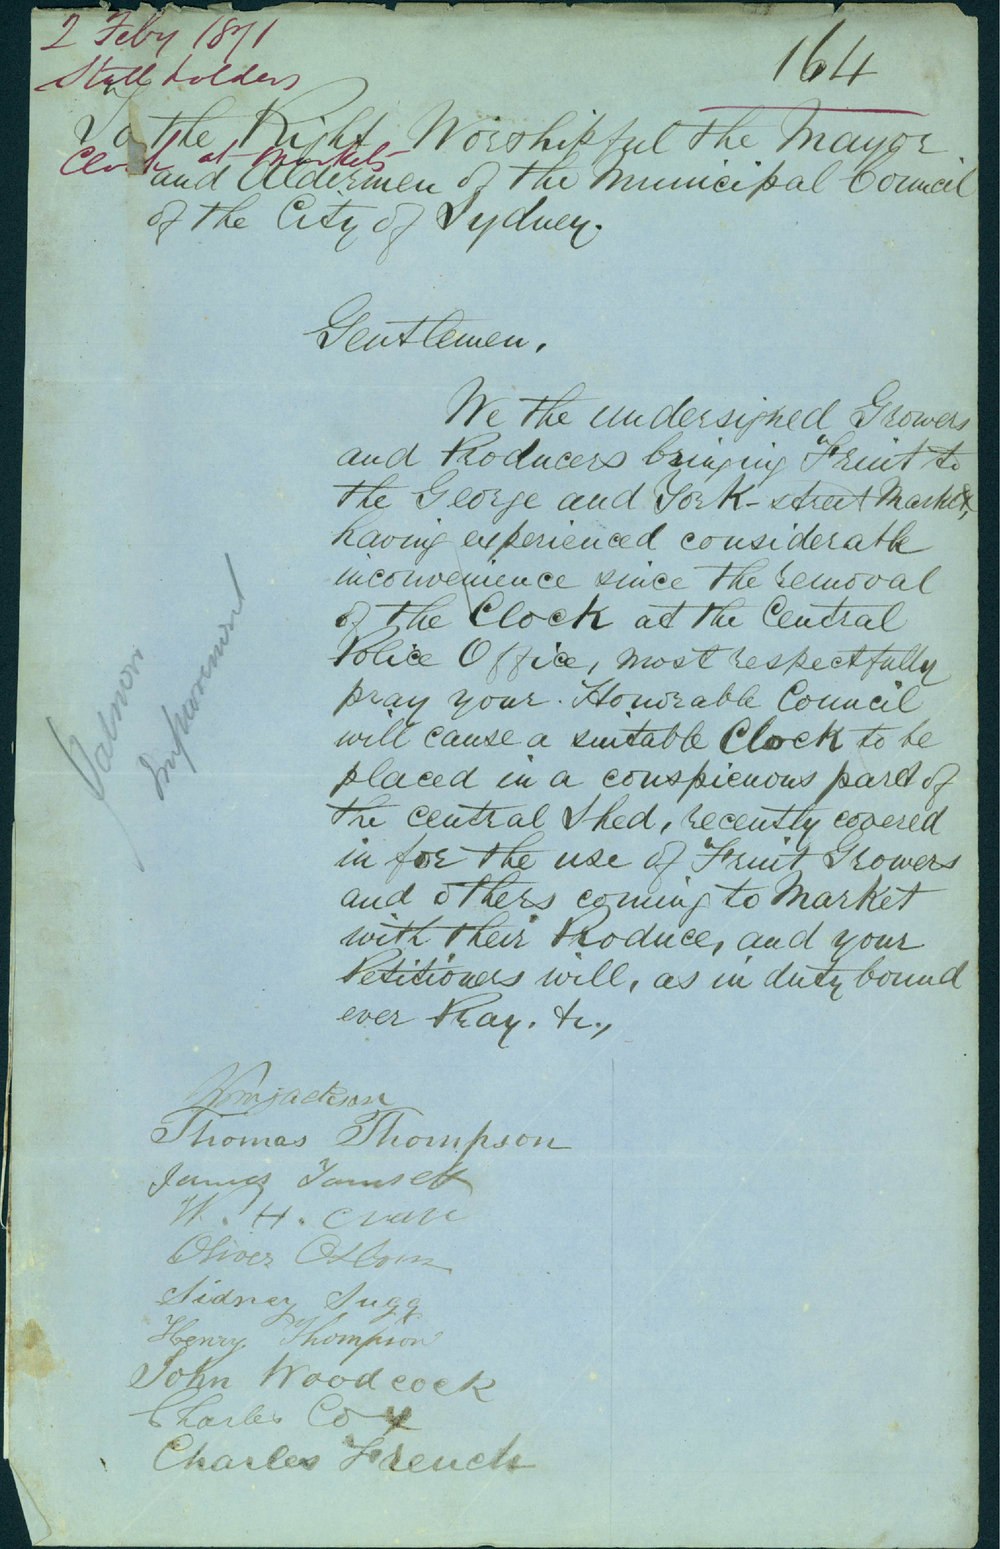 2 Feby 1871
164
Stall holders
To the Right Worshipful the Mayor
Clock at Markets
and Aldermen of the Municipal Council
of the City of Sydney.
Gentlemen,
We the undersigned Growers
and Producers bringing Fruit to
the George and York-street Market,
having experienced considerable
inconvenience since the removal
of the Clock at the Central
Police Office, most respectfully
pray your Honorable Council
will cause a suitable Clock to be
placed in a conspicuous part of
the central Shed, recently covered
in for the use of Fruit Growers
and others coming to Market
with their Produce, and your
Petitioners will, as in duty bound
ever Pray. &c.,
Improvement
Wm Jackson
Thomas Thompson
James
W. H.
Oliver Osborn
Sidney Sugg
Henry Thompson
John Woodcock
Charles Cox
Charles French